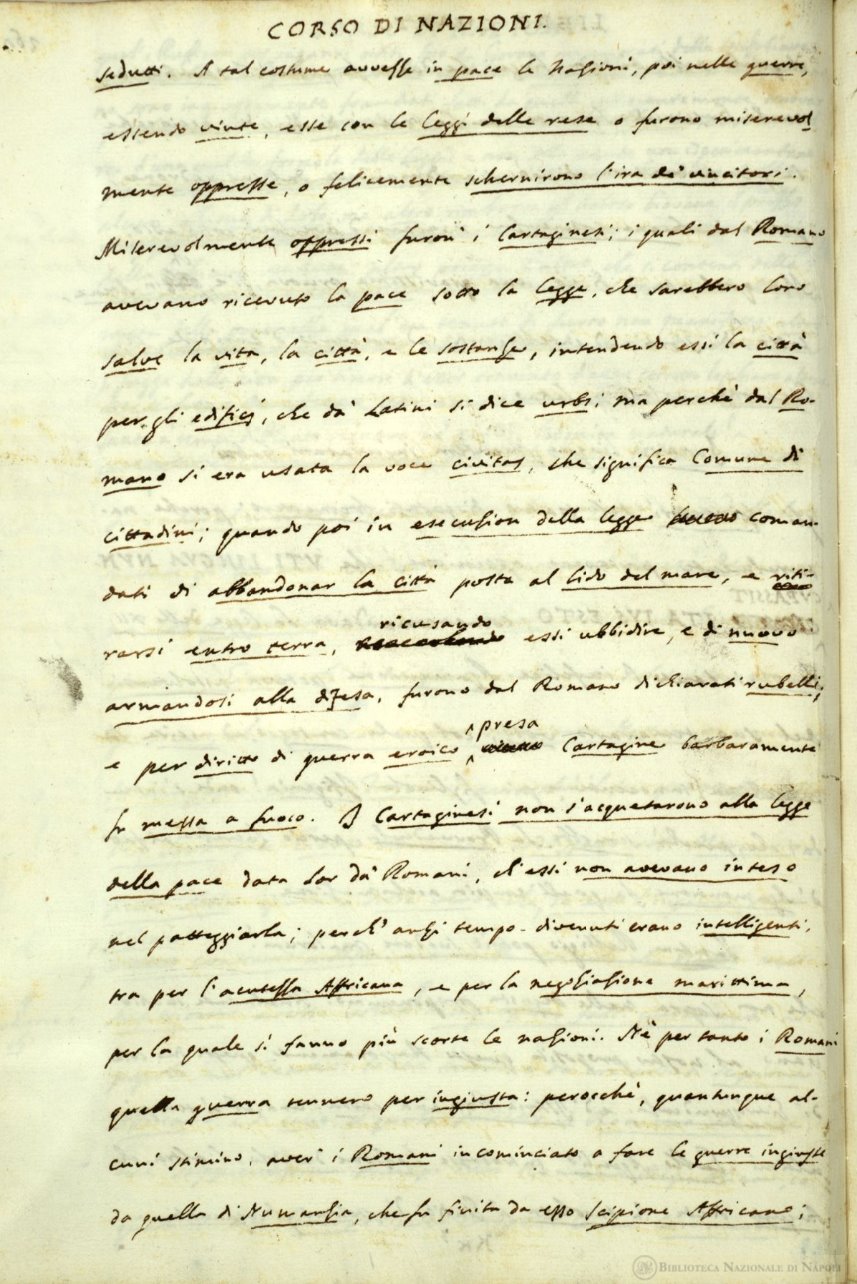 CORSO DI NAZIONI.
sedutti. A tal costume avvesse in pace le Nazioni, poi nelle guerre,
essendo vinte, esse con le leggi delle rese o furono miserevol
mente oppresse, o felicemente schernirono l'ira de' vincitori.
Miserevolmente oppressi furon' i Cartaginesi; i quali dal Romano
avevano ricevuto la pace sotto la legge, che sarebbero loro
salve la vita, la città, e le sostanze, intendendo essi la città
per gli edificj, che da' Latini si dice urbs; ma perchè dal Ro-
mano si era usata la voce civitas, che significa Comune di
cittadini; quando poi in esecuzion della legge coman-
dati di abbandonar la città posta al lido del mare, e riti-
rarsi entro terra, ricusando essi ubbidire, e di nuovo
armandosi alla difesa, furono dal Romano dichiarati rubelli;
e per diritto di guerra eroico presa Cartagine barbaramente
fu messa a fuoco. I Cartaginesi non s'acquetarono alla legge
della pace data lor da' Romani, ch'essi non avevano inteso
nel patteggiarla; perch' anzi tempo divenuti erano intelligenti,
tra per l'acutezza Affricana, e per la negoziazione marittima,
per la quale si fanno più scorte le nazioni. Nè per tanto i Romani
quella guerra tennero per ingiusta: perocchè, quantunque al-
cuni stimino, aver' i Romani incominciato a fare le guerre ingiuste
da quella di Numanzia, che fu finita da esso Scipione Affricano;
BIBLIOTECA NAZIONALE DI NAPOLI